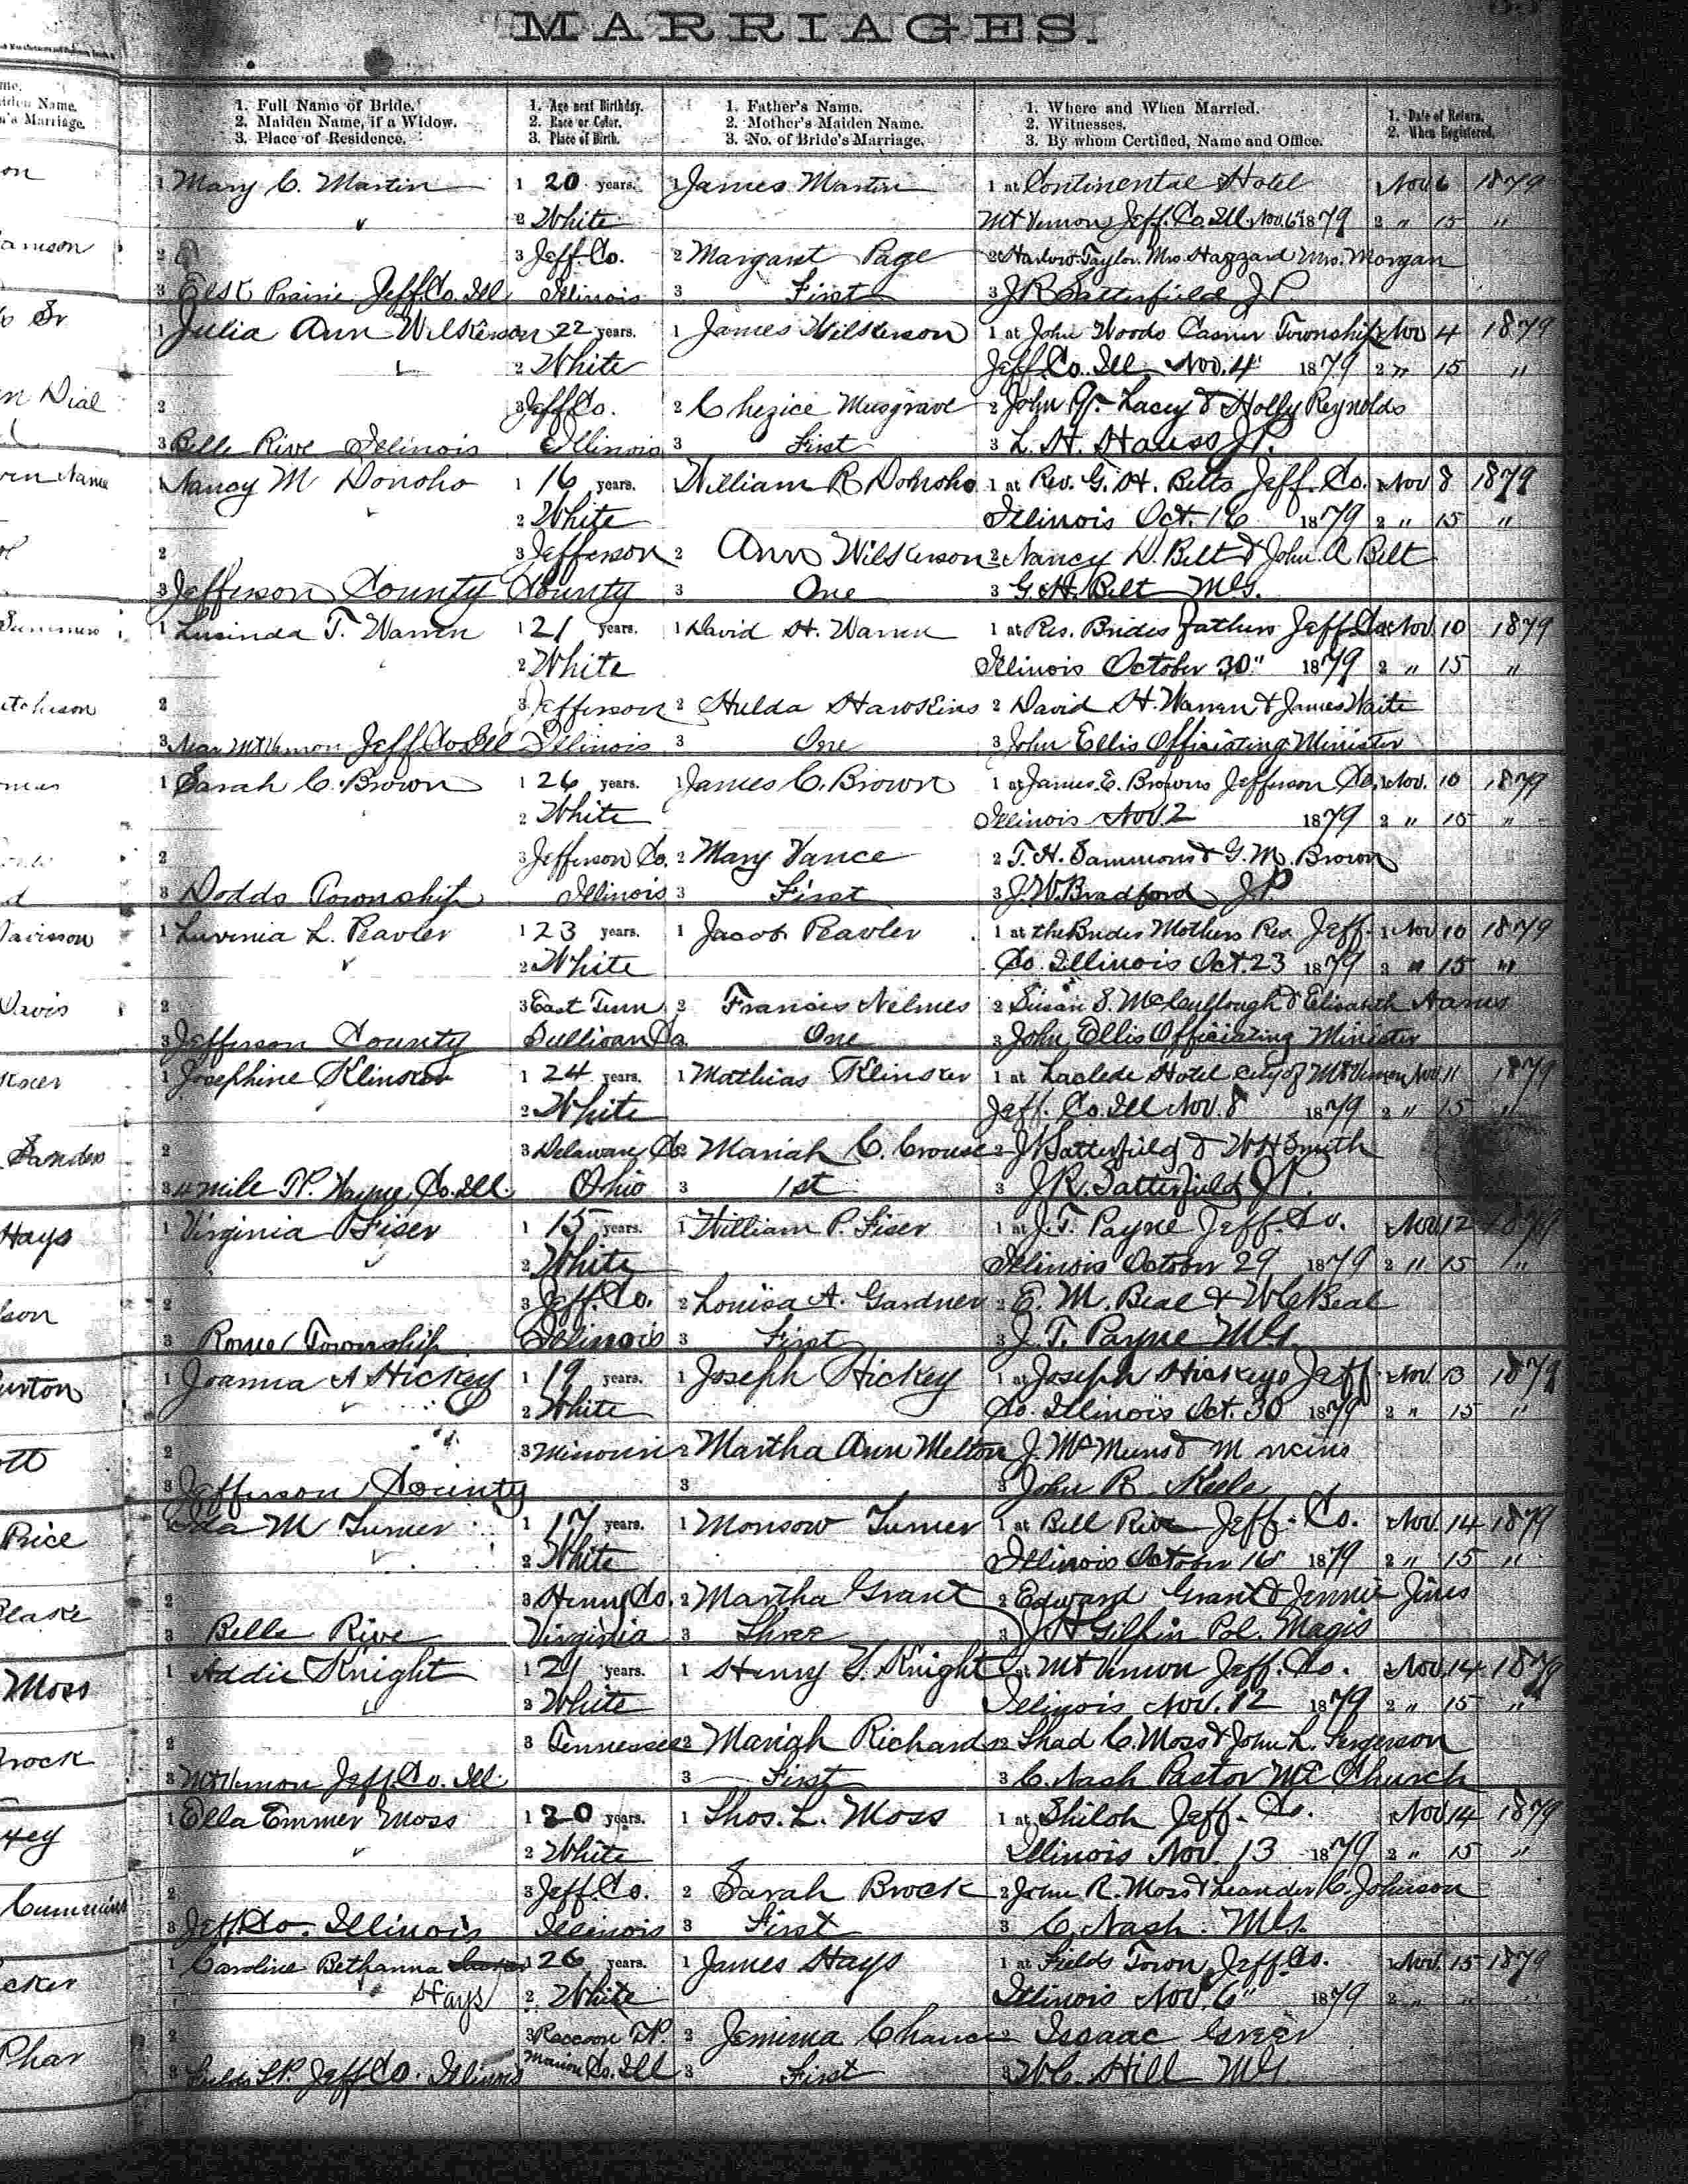 MARRIAGES.
1. Full Name of Bride. 1. Age next Birthday. 1. Father's Name. 1. Where and When Married. 1. Date of Return.
2. Maiden Name, if a Widow. 2. Race or Color. 2. Mother's Maiden Name. 2. Witnesses. 2. When Registered.
3. Place of Residence. 3. Place of Birth. 3. No. of Bride's Marriage. 3. By whom Certified, Name and Office.
1 Mary C. Martin 1 20 years. 1 James Martin 1 at Continental Hotel 1 Nov 6 1879
2 White Mt Vernon Jeff. Co. Ill. Nov. 6 1879 2 " 15 "
2 3 Jeff. Co. 2 Margaret Page 2 Harlow Taylor Mrs. Hazzard Mrs. Morgan
3 Elk Prairie Jeff Co. Ill Illinois 3 First 3 J R Satterfield J P.
1 Julia Ann Wilkerson 22 years. 1 James Wilkerson 1 at John Woods Casner Township 1 Nov 4 1879
2 White Jeff. Co. Ill. Nov. 4 1879 2 " 15 "
2 3 Jeff Co. 2 Musgrave 2 John Lacey & Holly Reynolds
3 Belle Rive Illinois Illinois 3 First 3 L. H. J P.
1 Nancy M Donoho 1 16 years. William R Donoho 1 at Rev. G. H. Belts Jeff. Co. 1 Nov 8 1879
2 White Illinois Oct. 16 1879 2 " 15 "
2 3 Jefferson 2 Ann Wilkerson 2 Nancy D. Belt & John A Belt
3 Jefferson County County 3 One 3 G. H. Belt M.G.
1 Lucinda T. Warren 1 21 years. 1 David H. Warren 1 at Res. Brides fathers Jeff Co 1 Nov. 10 1879
2 White Illinois October 30" 1879 2 " 15 "
2 3 Jefferson 2 Hulda Hawkins 2 David H. Warren & James Waite
3 Near Mt Vernon Jeff Co Ill Illinois 3 One 3 John Ellis Officiating Minister
1 Sarah C. Brown 1 26 years. 1 James C. Brown 1 at James E. Browns Jefferson Co. 1 Nov. 10 1879
2 White Illinois Nov 2 1879 2 " 15 "
2 3 Jefferson Co. 2 Mary Vance 2 T. H. Sammons & G. M. Brown
3 Dodds Township Illinois 3 First 3 J. W. Bradford J P
1 Luvinia L. Peavler 1 23 years. 1 Jacob Peavler 1 at the Brides Mothers Res. Jeff. 1 Nov 10 1879
2 White Co. Illinois Oct. 23 1879 2 " 15 "
2 3 East Tenn. 2 Francis Nelmes 2 Susan S. McCullough & Elisabeth
3 Jefferson County Sullivan Co. One 3 John Ellis Officiating Minister
1 Josephine Klinsker 1 24 years. 1 Mathias Klinsker 1 at Laclede Hotel City of Mt Vernon Nov 11 1879
2 White Jeff. Co. Ill Nov. 8 1879 2 " 15 "
2 3 Delaware Co 2 Mariah C. Crouse 2 J Satterfield & W H Smith
3 4 mile TP. Wayne Co. Ill. Ohio 3 1st 3 J. R. Satterfield J P.
1 Virginia Fiser 1 15 years. 1 William P. Fiser 1 at J. T. Payne Jeff. Co. 1 Nov 12 1879
2 White Illinois October 29 1879 2 " 15 "
2 3 Jeff. Co. 2 Louisa A. Gardner 2 E. M. Beal & W C Beal
3 Rome Township Illinois 3 First 3 J. T. Payne M.G.
1 Joanna A Hickey 1 19 years. 1 Joseph Hickey 1 at Joseph Hickeys Jeff 1 Nov. 13 1879
2 White Co. Illinois Oct. 30 1879 2 " 15 "
2 3 Missouri 2 Martha Ann Melton J. &
3 Jefferson County 3 3 John R. Keele
Ida M Turner 1 17 years. 1 Monsow Turner 1 at Bell Rive Jeff. Co. 1 Nov. 14 1879
2 White Illinois October 16 1879 2 " 15 "
2 3 Henry Co. 2 Martha Grant 2 Edward Grant & Jennie Jines
3 Belle Rive Virginia 3 Three 3 J H Gilfin Pol. Magis
1 Addie Knight 1 21 years. 1 Henry Knight 1 at Mt Vernon Jeff. Co. 1 Nov. 14 1879
2 White Illinois Nov. 12 1879 2 " 15 "
2 3 Tennessee 2 Mariah Richards 2 Thad C. Moss & John L. Ferguson
3 Mt Vernon Jeff. Co. Ill. 3 First 3 C. Nash Pastor ME Church
1 Ella Emmer Moss 1 20 years. 1 Thos. L. Moss 1 at Shiloh Jeff. Co. 1 Nov 14 1879
2 White Illinois Nov. 13 1879 2 " 15 "
2 3 Jeff. Co. 2 Sarah Brock 2 John R. Moss & Leander C. Johnson
3 Jeff Co. Illinois Illinois 3 First 3 C. Nash. M.G.
1 Caroline Bethanna 1 26 years. 1 James Hays 1 at Fields Town Jeff Co. 1 Nov. 15 1879
Hays 2 White Illinois Nov. 6" 1879 2 " " "
2 3 Raccoon TP. 2 Jemima Chance 2 Isaac Greer
3 Fields T.P. Jeff Co. Illinois Marion Co. Ill 3 First 3 W. C. Hill M.G.